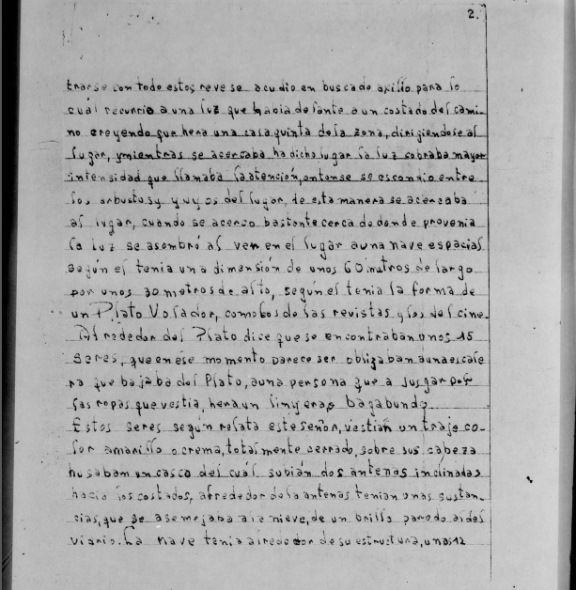 2.
trarse con todo estos reve se acudio en busca de axilio para lo
cuál recurrio a una luz que habia delante a un costado del cami-
no creyendo que hera una casa quinta de la zona, dirigiendose al
lugar, y mientras se acercaba ha dicho lugar la luz cobraba mayor
intensidad que llamaba la atención, entonse se escondio entre
los arbustos y yuyos del lugar, de esta manera se acercaba
al lugar, cuando se acerco bastante cerca de donde provenia
la luz se asombró al ver en el lugar a una nave espacial
según el tenia una dimensión de unos 60 metros de largo
por unos 30 metros de alto, según el tenia la forma de
un Plato Volador, como los de las revistas y los del cine.
Alrededor del Plato dice que se encontraban unos 15
Seres, que en ése momento parece ser obligaban a una escale
ra que bajaba del Plato, a una persona que a Jusgar por
las ropas que vestia, hera un linyera o bagabundo.
Estos seres según relata este señor, vestian un traje co-
lor amarillo o crema, totalmente cerrado, sobre sus cabeza
husaban un casco del cuál subián dos antenas inclinadas
hacia los costados, alrededor de la antenas tenian unas sustan-
cias, que se asemejaba a la nieve, de un brillo parecido al del
viario. La nave tenia alrededor de su estructura, unos 12